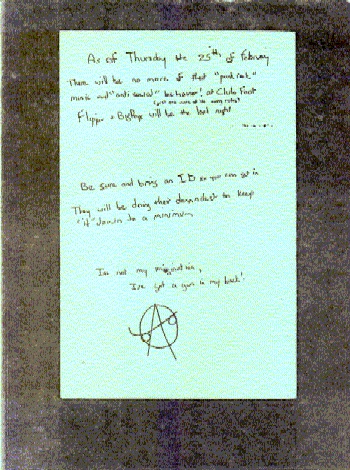 As of Thursday the 25th, of February
There will be no more of that "punk rock"
music and "anti social" behavior! at Club Foot
Flipper & Bigflipe will be the last night
Be sure and bring an ID so you can get in
They will be doing their damndest to keep
"it" down to a minimum
I'm not my
I've got a gun in my back!